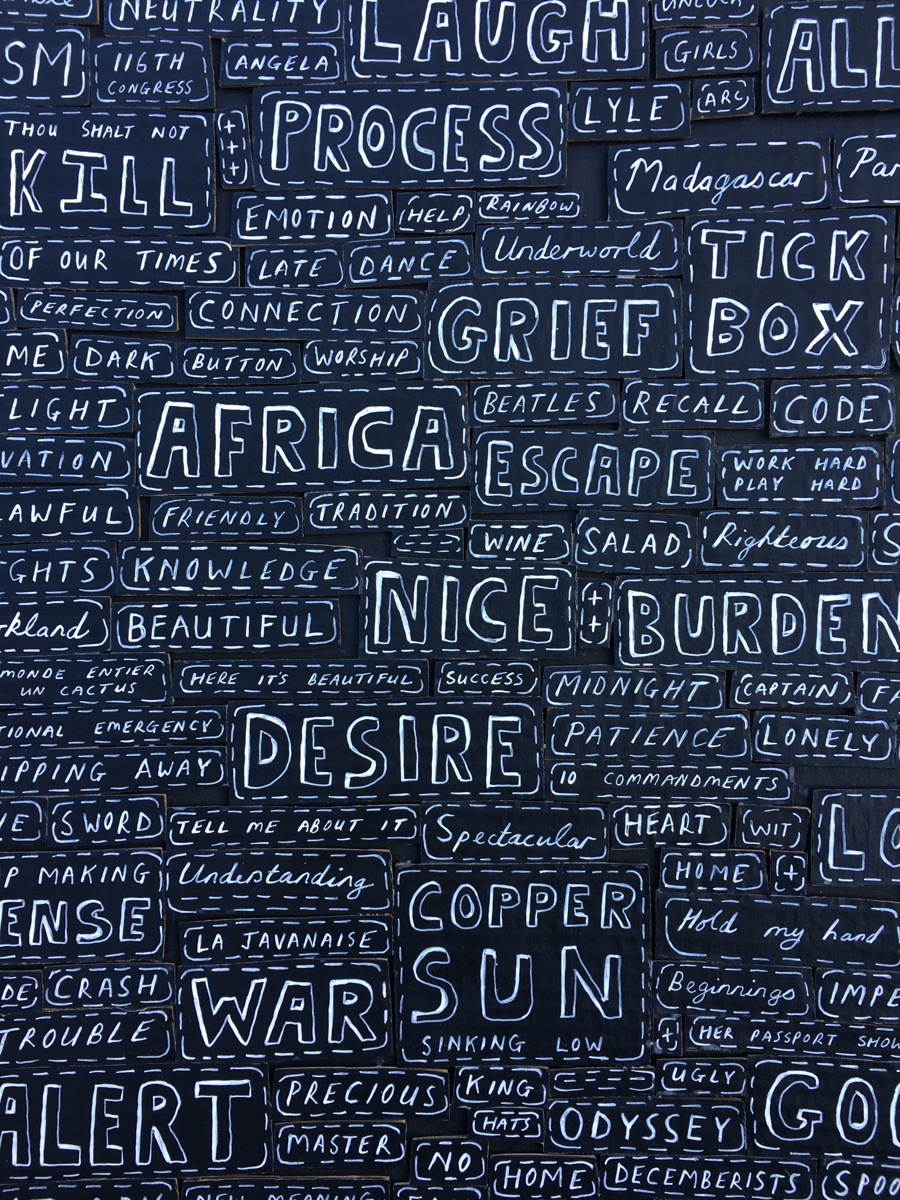 NEUTRALITY
LAUGH
SM
116TH
CONGRESS
ANGELA
GIRLS
ALL
PROCESS
LYLE
ARC
THOU SHALT NOT
KILL
+
+
+
Madagascar
Par
EMOTION
HELP
RAINBOW
OF OUR TIMES
LATE
DANCE
Underworld
TICK
BOX
PERFECTION
CONNECTION
GRIEF
ME
DARK
BUTTON
WORSHIP
LIGHT
AFRICA
BEATLES
RECALL
CODE
VATION
ESCAPE
WORK HARD
PLAY HARD
AWFUL
FRIENDLY
TRADITION
WINE
SALAD
Righteous
S
GHTS
KNOWLEDGE
NICE
+
+
BURDEN
rkland
BEAUTIFUL
MONDE ENTIER
UN CACTUS
HERE IT'S BEAUTIFUL
SUCCESS
MIDNIGHT
CAPTAIN
FA
TIONAL EMERGENCY
DESIRE
PATIENCE
LONELY
IPPING AWAY
10 COMMANDMENTS
VE
SWORD
TELL ME ABOUT IT
Spectacular
HEART
WIT
LO
P MAKING
ENSE
Understanding
COPPER
SUN
SINKING LOW
HOME
+
LA JAVANAISE
Hold my hand
DE
CRASH
WAR
Beginnings
IMPE
TROUBLE
+
HER PASSPORT SHOW
ALERT
PRECIOUS
KING
UGLY
GOO
HATS
ODYSSEY
MASTER
NO
HOME
DECEMBERISTS
SPOO
NEW MEANING